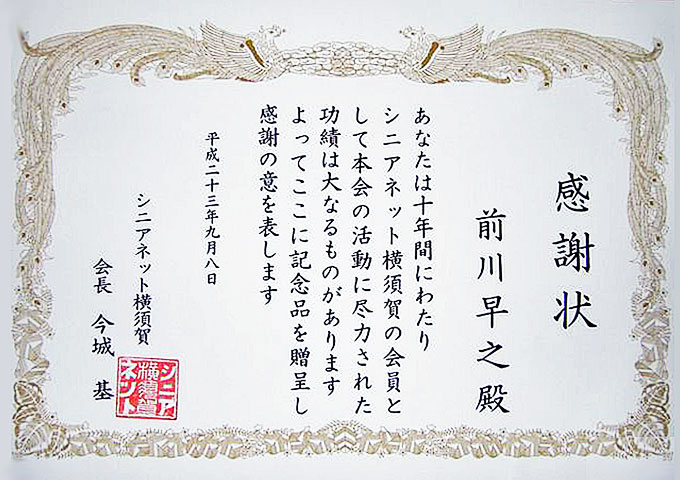 感謝状
前川早之殿
あなたは十年間にわたり
シニアネット横須賀の会員と
して本会の活動に尽力された
功績は大なるものがあります
よってここに記念品を贈呈し
感謝の意を表します
平成二十三年九月八日
シニアネット横須賀
会長 今城 基
シニア
横須賀
ネット